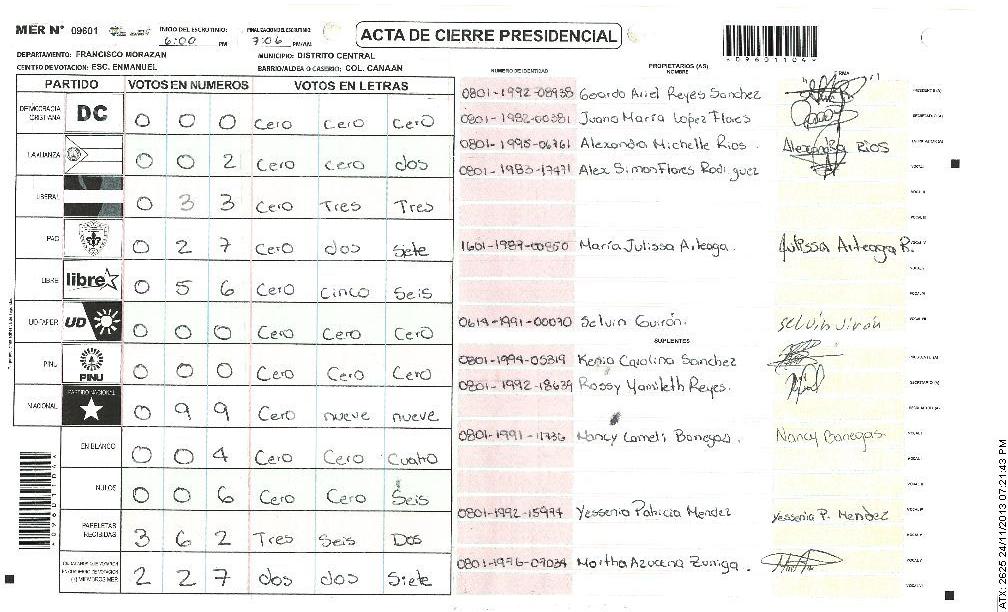 MER N° 09601 INICIO DEL ESCRUTINIO: 6:00 PM FINALIZACION DEL ESCRUTINIO: 7:06 PM/AM
ACTA DE CIERRE PRESIDENCIAL
DEPARTAMENTO: FRANCISCO MORAZAN MUNICIPIO: DISTRITO CENTRAL
CENTRO DE VOTACION: ESC. ENMANUEL BARRIO/ALDEA O CASERIO: COL. CANAAN
PARTIDO VOTOS EN NUMEROS VOTOS EN LETRAS
DEMOCRACIA CRISTIANA DC 0 0 0 Cero Cero Cero
LA ALIANZA 0 0 2 Cero cero dos
LIBERAL 0 3 3 Cero Tres Tres
PAC 0 2 7 Cero dos Siete
LIBRE libre 0 5 6 Cero Cinco Seis
UD-FAPER UD 0 0 0 Cero Cero Cero
PINU PINU 0 0 0 Cero Cero Cero
NACIONAL PARTIDO NACIONAL 0 9 9 Cero nueve nueve
EN BLANCO 0 0 4 Cero Cero Cuatro
NULOS 0 0 6 Cero Cero Seis
PAPELETAS RECIBIDAS 3 6 2 Tres Seis Dos
2 2 7 dos dos Siete
NUMERO DE IDENTIDAD PROPIETARIOS (AS) NOMBRE FIRMA
0801-1992-08938 Gerardo Ariel Reyes Sanchez PRESIDENTE (A)
0801-1982-00381 Juana María Lopez Flores SECRETARIO (A)
0801-1995-06761 Alexandra Michelle Rios. Alexandra RIOS
0801-1983-17471 Alex Simon Flores Rodriguez VOCAL I
VOCAL II
VOCAL III
1601-1987-00850 María Julissa Arteaga. Julissa Arteaga R. VOCAL IV
VOCAL V
VOCAL VI
0614-1991-00070 Selvin Guirón. VOCAL VII
SUPLENTES
0801-1994-05319 Kenia Carolina Sanchez PRESIDENTE (A)
0801-1992-18639 Rossy Yamileth Reyes. SECRETARIO (A)
ESCRUTADOR (A)
0801-1991-11736 Nancy Lameli Banegas. Nancy Banegas. VOCAL I
VOCAL II
VOCAL III
0801-1992-15994 Yessenia Patricia Mendez Yessenia P. Mendez VOCAL IV
VOCAL V
0801-1996-09034 Martha Azucena Zuniga.
VOCAL VII
*09601104*
ATX 2625 24/11/2013 07:21:43 PM